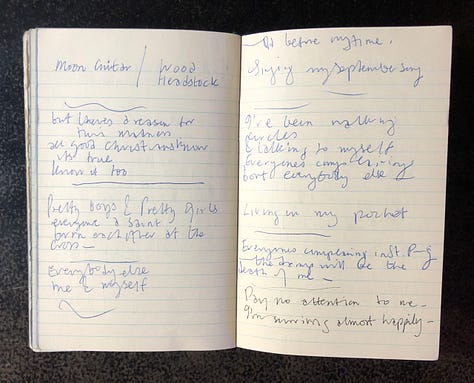 Moon Guitar / Wood
Headstock
but there's a reason for
this madness
all good Christians know
it's true
know it too
Pretty Boys & Pretty Girls
everyone a saint
burn each other at the
cross —
Everybody else
me & myself
before my time.
my september song
I've been walking
circles
& talking to myself
Everyones complaining
bout everybody else
Living in my pocket
Everyones complaining in St. P—g
& the damp will be the
death of me —
Pay no attention to me —
I'm surviving almost happily —